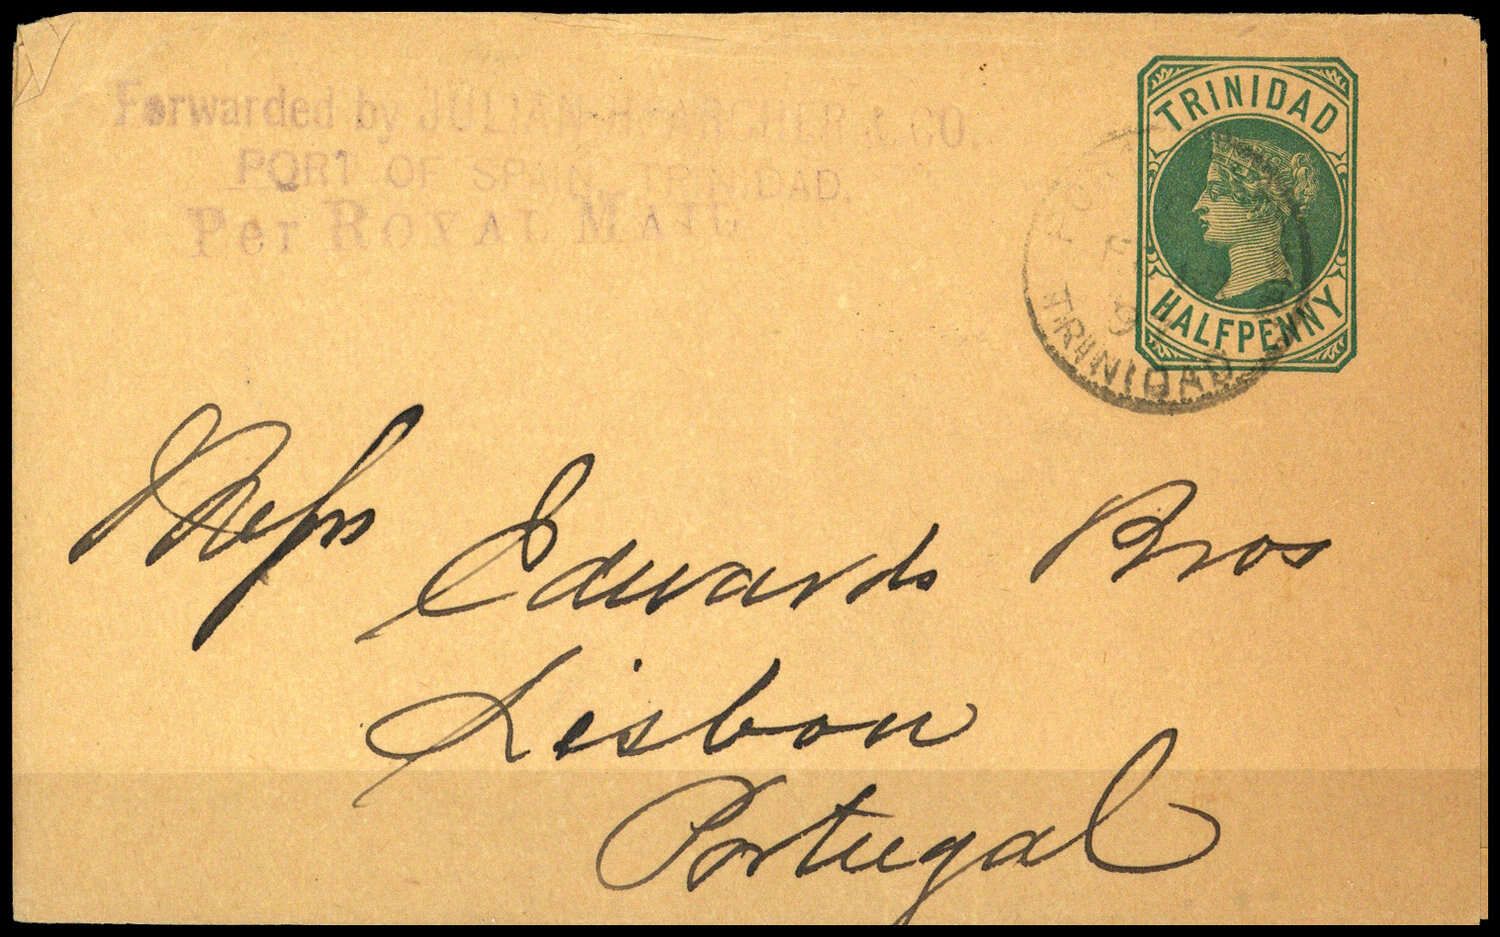 Forwarded by JULIAN H. ARCHER & CO.
PORT OF SPAIN, TRINIDAD.
Per ROYAL MAIL
TRINIDAD
HALFPENNY
TRINIDAD
Messrs Edwards Bros
Lisbon
Portugal